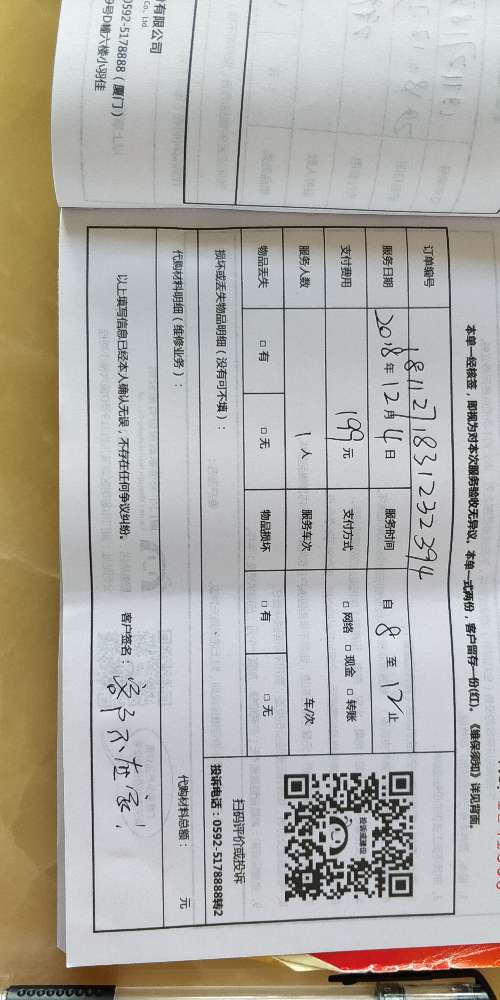 有限公司
Co., Ltd
0592-5178888（厦门）
9号D幢六楼小羽佳
本单一经核签，即视为对本次服务验收无异议。本单一式两份，客户留存一份(红)。《维保须知》详见背面。
订单编号 1811271831232394
服务日期 2018年12月4日 服务时间 自 8 至 12 止
支付费用 199元 支付方式 □ 网络 □ 现金 □ 转账
服务人数 1人 服务车次 车/次
物品丢失 □ 有 □ 无 物品损坏 □ 有 □ 无
扫码评价或投诉
投诉电话：0592-5178888转2
损坏或丢失物品明细（没有可不填）：
代购材料明细（维修业务）： 代购材料总额： 元
以上填写信息已经本人确认无误，不存在任何争议纠纷。 客户签名：客户不在家！